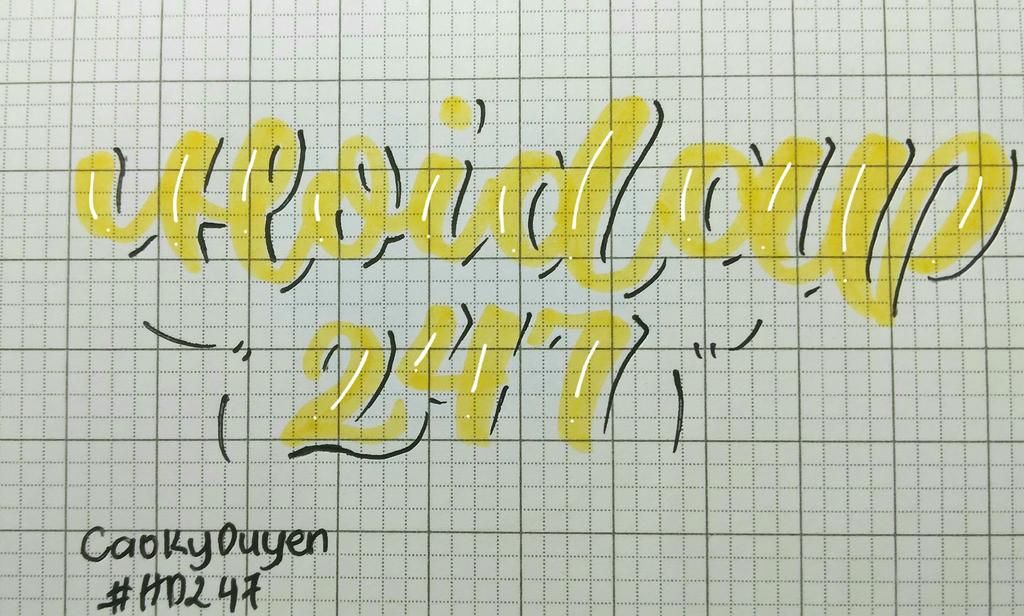 Hoidap
247
CaoKyDuyen
#HD247